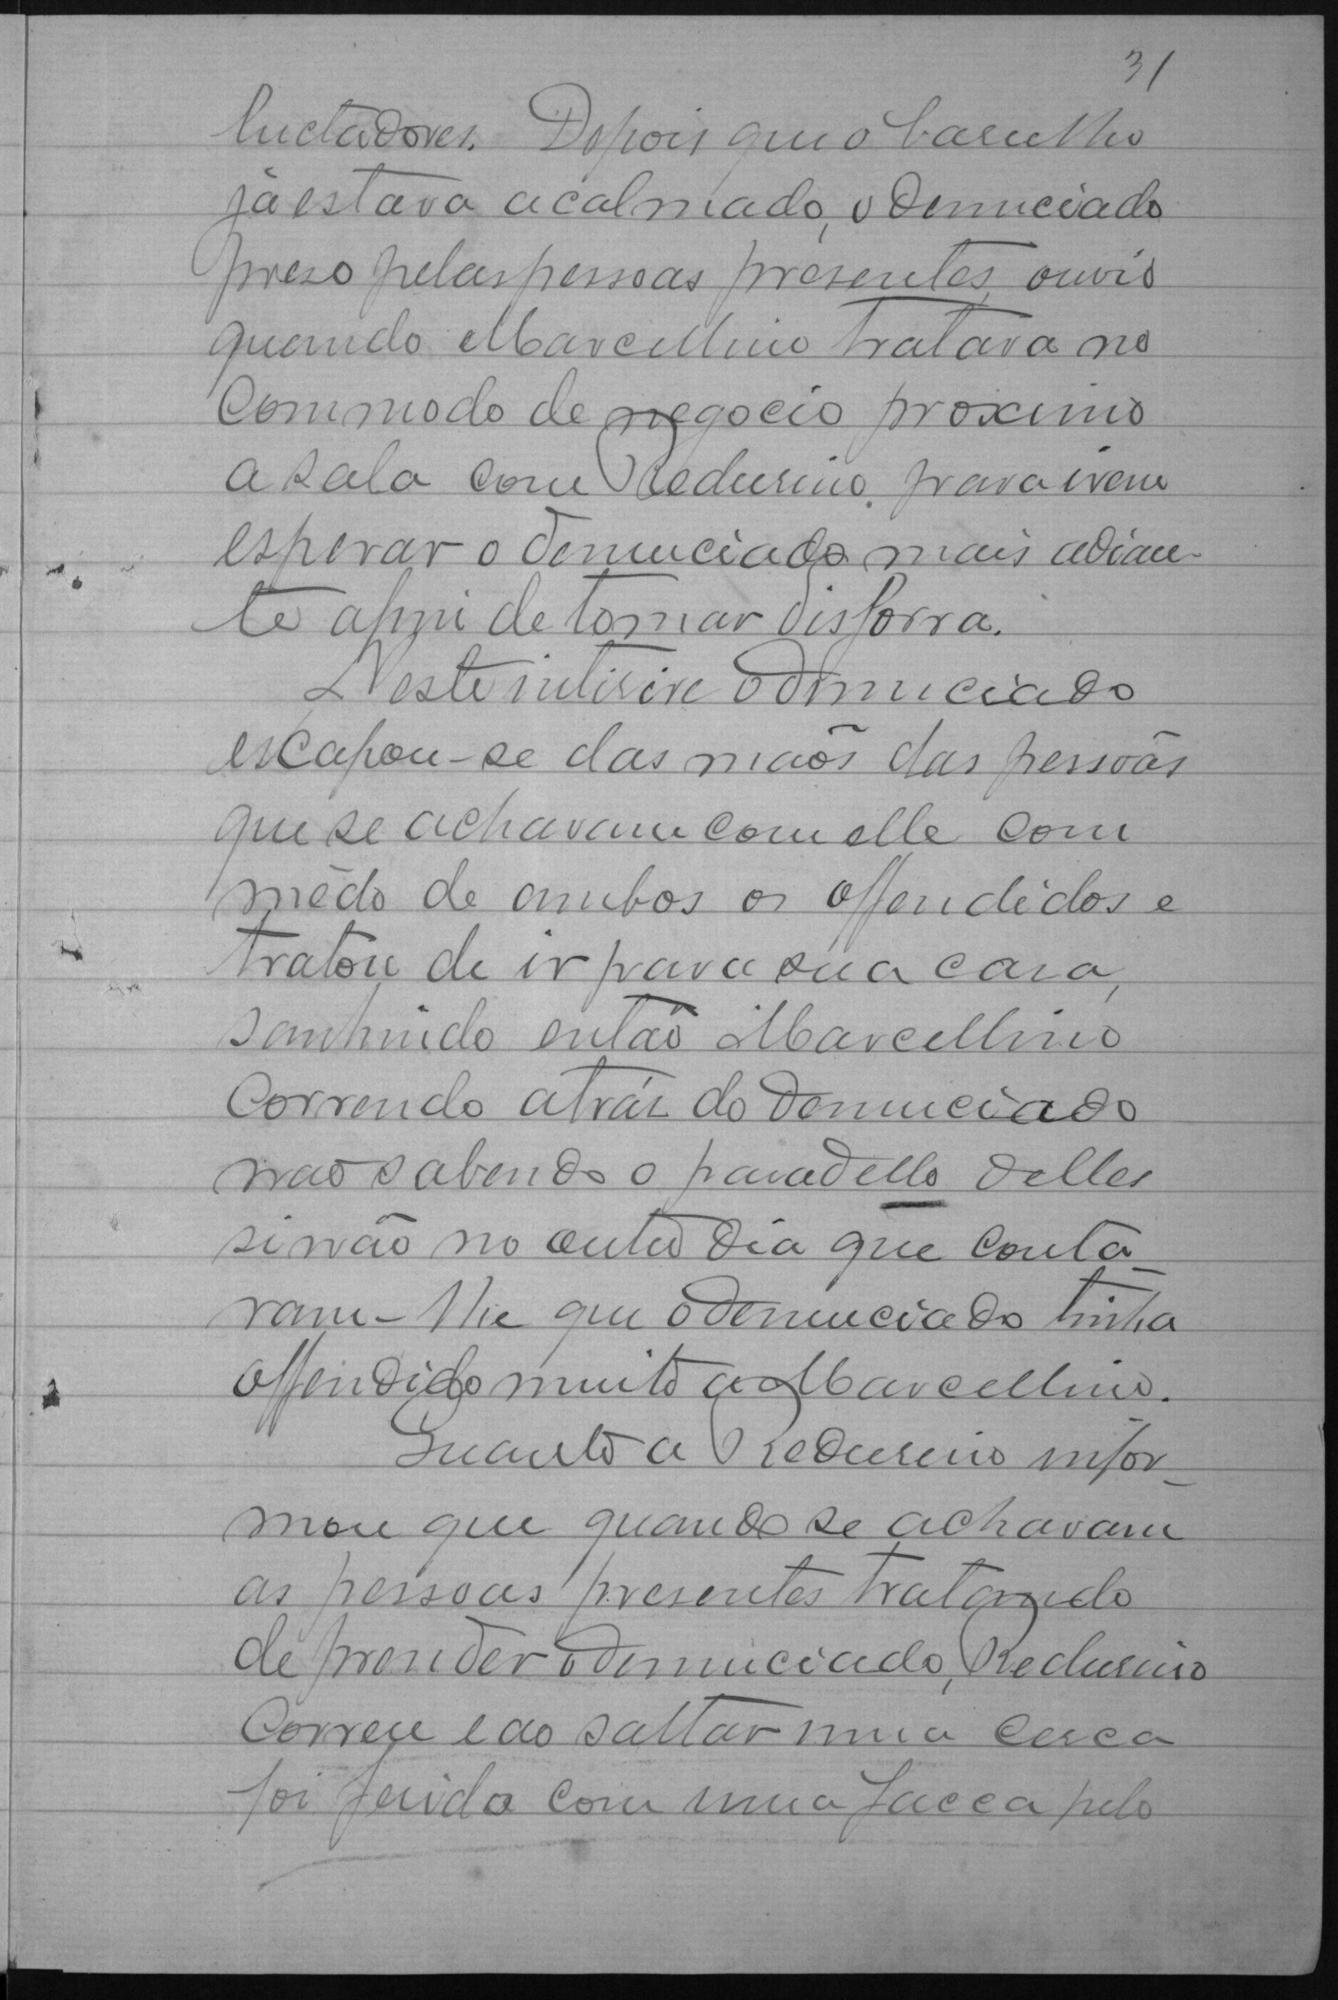 31
luctadores. Depois que o barulho
já estava acalmado, o denunciado
preso pelas pessoas presentes, ouvio
quando Marcellino tratava no
commodo de negocio proximo
a sala com Redusino, para irem
esperar o denunciado mais adian-
te afim de tomar disforra.
N'este interire o denunciado
escapou-se das mãos das pessoas
que se achavam com elle com
mêdo de ambos os offendidos e
tratou de ir para sua casa,
sahindo então Marcellino
correndo atrás do denunciado
não sabendo o paradello delles
sinão no outro dia que conta-
ram-lhe que o denunciado tinha
offendido muito a Marcellino.
Quanto a Redusino infor-
mou que quando se achavam
as pessoas presentes tratando
de prender o denunciado, Redusino
correu e ao saltar uma cerca
foi ferido com uma facca pelo